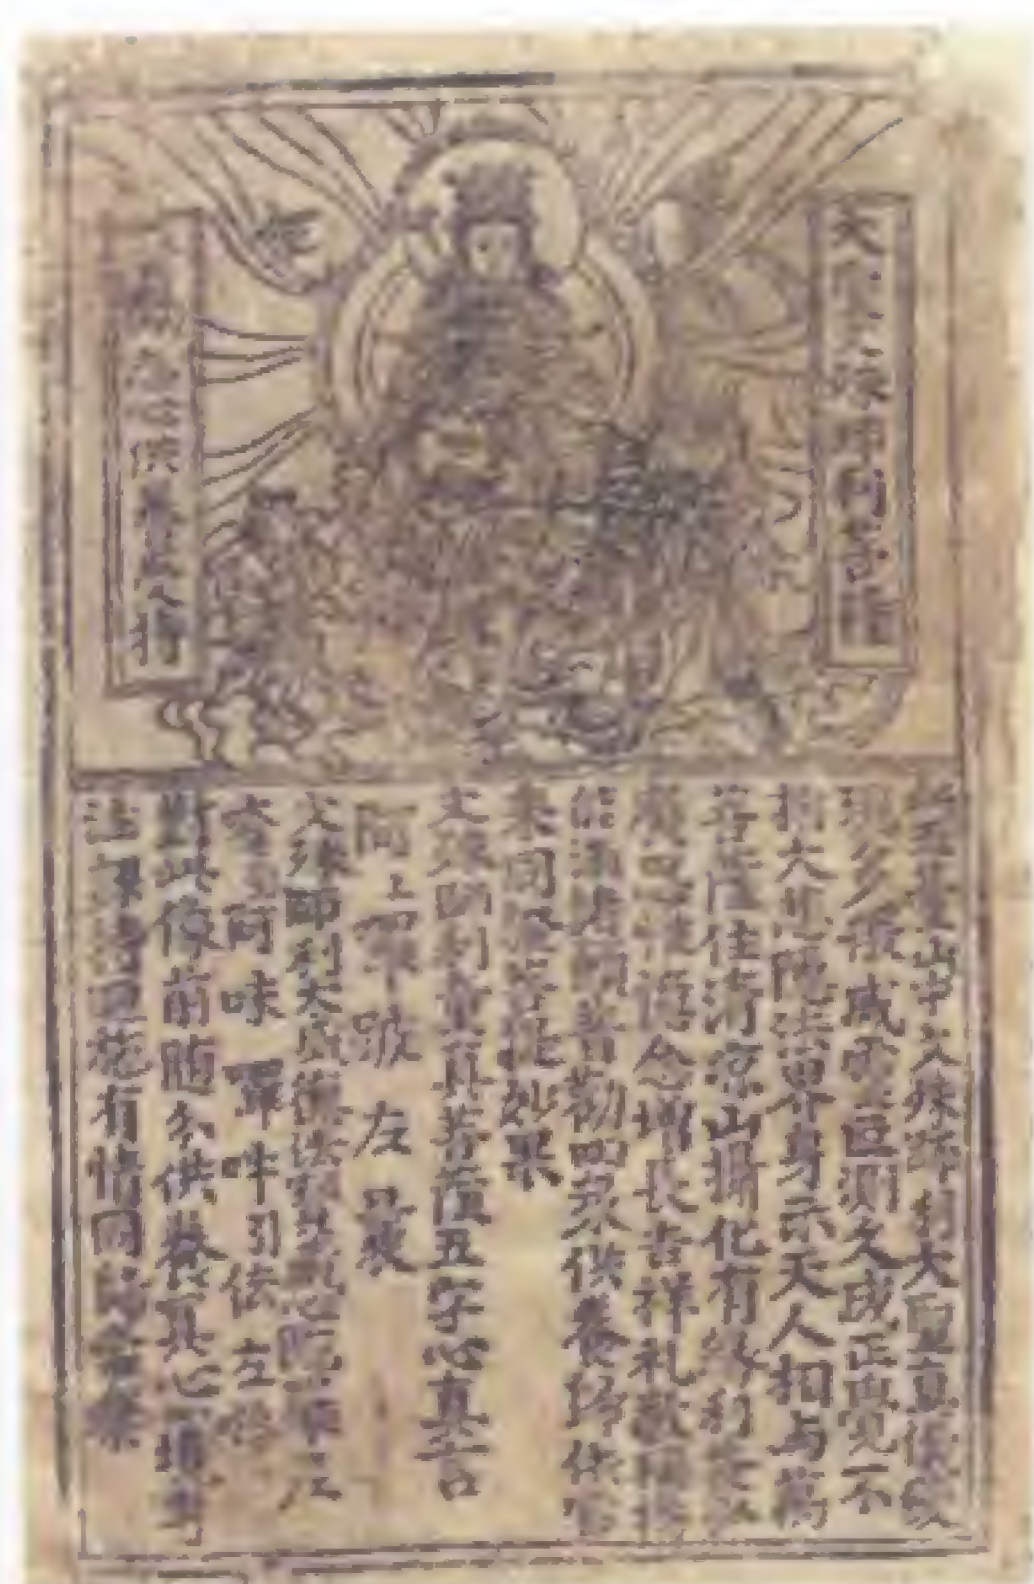 大聖文殊師利菩薩
普勸志心供養受持
此五臺山中文殊師利大聖真儀變
現多般威靈叵測久成正覺不
捨大悲隱法界身示天人相与萬
菩薩住清涼山攝化有緣利益弘
廣思惟憶念增長吉祥礼敬稱揚
能滿諸願普勸四衆供養歸依當
来同證菩提妙果
文殊師利童真菩薩五字心真言
阿上囉跛左曩
文殊師利大威德法寶藏心陁羅尼
阿味囉吽引佉左
對此像前随分供養心專
注課誦迴施有情同歸常樂